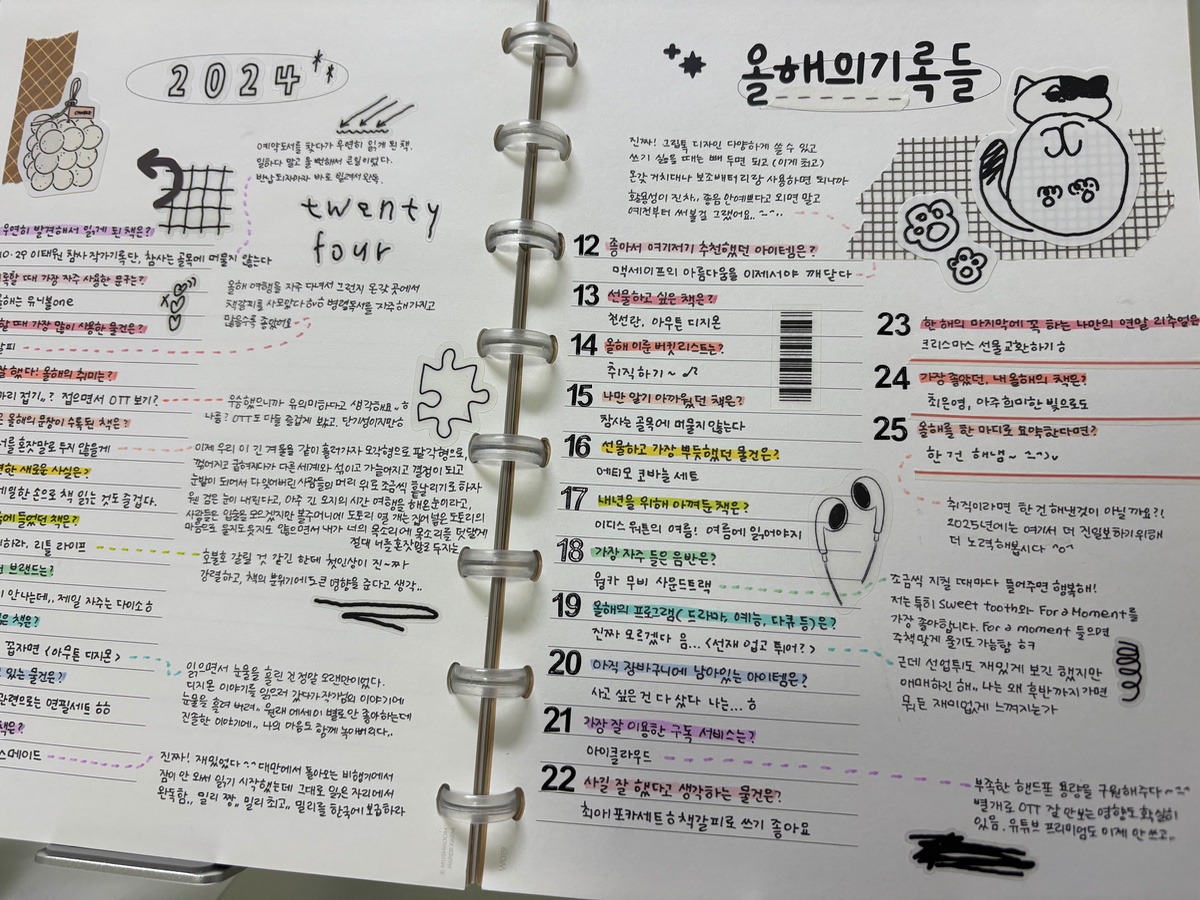 2024
예약도서를 찾다가 우연히 읽게 된 책.
일하다 말고 울 뻔해서 큰일이었다.
반납되자마자 바로 빌려서 완독.
twenty
four
우연히 발견해서 읽게 된 책은?
10·29 이태원 참사 작가기록단, 참사는 골목에 머물지 않는다
록할 때 가장 자주 사용한 문구는?
올해는 유니볼one
할 때 가장 많이 사용한 물건은?
갈피
올해 여행을 자주 다녀서 그런지 온갖 곳에서
책갈피를 사모았다 병렬독서를 자주해가지고
많을수록 좋았어요
잘 했다! 올해의 취미는?
접기..? 접으면서 OTT 보기?
우승했으니까 유의미하다고 생각해요..ㅎ
나름? OTT도 다들 즐겁게 봤고. 단기성이지만ㅎ
올해의 문장이 수록된 책은?
너를 혼잣말로 두지 않을게
이제 우리 이 긴 겨울을 같이 흘러가자 모각형으로, 팔각형으로,
꺾어지고 굽혀지다가 다른 세계와 섞이고 가늘어지고 결정이 되고
눈발이 되어서 다 잊어버린 사람들의 머리 위로 조금씩 흩날리기로 하자
웬 검은 눈이 내린다고, 아주 긴 오지의 시간 여행을 해온 눈이라고,
사람들은 입술을 모으겠지만 볼주머니에 도토리 열 개는 집어넣은 도토리의
마음으로 울지도 웃지도 않으면서 내가 너의 목소리에 목소리를 덧댈게
절대 너를 혼잣말로 두지는
새로운 사실은?
한 손으로 책 읽는 것도 즐겁다.
들었던 책은?
리틀 라이프
호불호 갈릴 것 같긴 한데 첫인상이 진~짜
강렬하고, 책의 분위기에도 큰 영향을 준다고 생각..
브랜드는?
안 나는데,.. 제일 자주는 다이소ㅎ
책은?
꼽자면 <아무튼 디지몬>
읽으면서 눈물을 흘린 건 정말 오랜만이었다.
디지몬 이야기를 읽으러 갔다가 작가님의 이야기에
눈물을 흘려 버려.. 원래 에세이 별로 안 좋아하는데
진솔한 이야기에.. 나의 마음도 함께 녹아버리다..
있는 물건은?
관련으로는 연필세트 ㅎㅎ
책은?
스메이드
진짜! 재밌었다 ^^ 대만에서 돌아오는 비행기에서
잠이 안 와서 읽기 시작했는데 그대로 앉은 자리에서
완독함,, 밀리 짱,, 밀리 최고,, 밀리를 한국에 보급하라
올해의기록들
진짜! 그립톡 디자인 다양하게 쓸 수 있고
쓰기 싫을 때는 빼 두면 되고 (이게 최고)
온갖 거치대나 보조배터리랑 사용하면 되니까
활용성이 진짜.. 좋음 안예쁘다고 외면 말고
예전부터 써볼걸 그랬어요..
12 좋아서 여기저기 추천했던 아이템은?
맥세이프의 아름다움을 이제서야 깨닫다
13 선물하고 싶은 책은?
천선란, 아무튼 디지몬
14 올해 이룬 버킷 리스트는?
취직하기~ ♪
15 나만 알기 아까웠던 책은?
참사는 골목에 머물지 않는다
16 선물하고 가장 뿌듯했던 물건은?
에티모 코바늘 세트
17 내년을 위해 아껴둔 책은?
이디스 워튼의 여름! 여름에 읽어야지
18 가장 자주 들은 음반은?
웡카 무비 사운드트랙
19 올해의 프로그램( 드라마, 예능, 다큐 등)은?
진짜 모르겠다 음... <선재 업고 튀어?>
20 아직 장바구니에 남아있는 아이템은?
사고 싶은 건 다 샀다 나는...ㅎ
21 가장 잘 이용한 구독 서비스는?
아이클라우드
22 사길 잘 했다고 생각하는 물건은?
최애 포카세트ㅎ 책갈피로 쓰기 좋아요
23 한 해의 마지막에 꼭 하는 나만의 연말 리추얼은
크리스마스 선물 교환하기ㅎ
24 가장 좋았던, 내 올해의 책은?
최은영, 아주 희미한 빛으로도
25 올해를 한 마디로 요약한다면?
한 건 해냄~
취직이라면 한 건 해낸것이 아닐까요?!
2025년에는 여기서 더 진일보하기 위해
더 노력해봅시다 ^o^
조금씩 지칠 때마다 들어주면 행복해!
저는 특히 sweet tooth와 For a Moment를
가장 좋아합니다. For a moment 들으면
주책맞게 울기도 가능함 ㅎㅋ
근데 선업튀도 재밌게 보긴 했지만
애매하긴 해.. 나는 왜 후반까지 가면
뭐든 재미없게 느껴지는가
부족한 핸드폰 용량을 구원해주다~
별개로 OTT 잘 안보는 영향도 확실히
있음. 유튜브 프리미엄도 이제 안 쓰고..